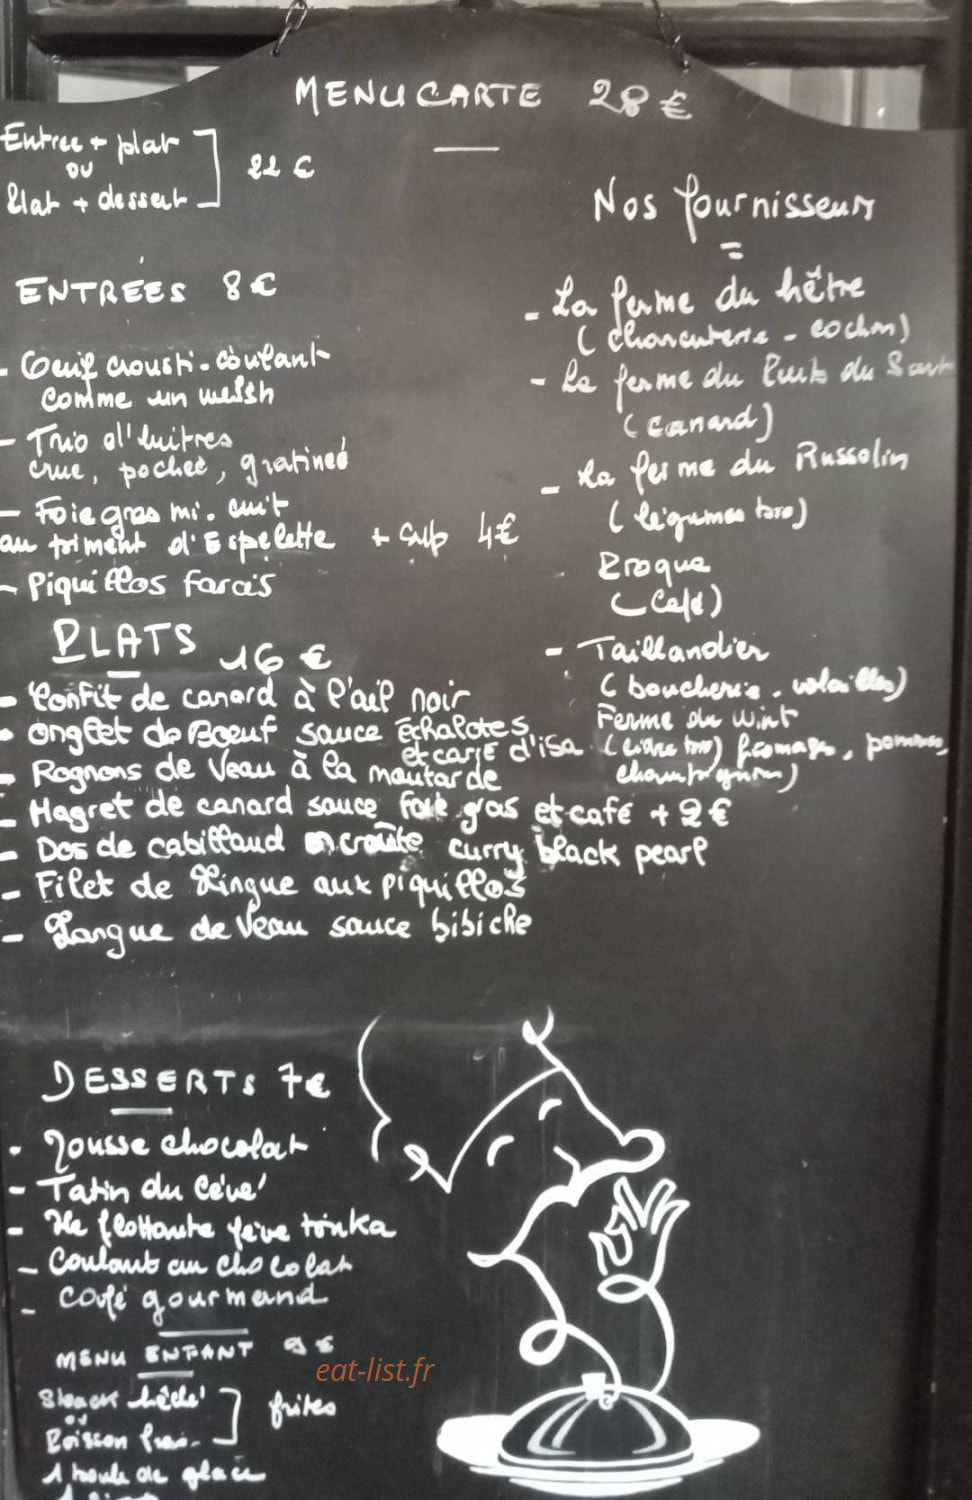 MENU CARTE 28 €
Entrée + plat
ou
Plat + dessert
22 €
ENTRÉES 8 €
- Oeuf crousti-coulant
comme un welsh
- Trio d'huitres
crue, pochée, gratinée
- Foie gras mi-cuit
au piment d'Espelette + sup 4€
- Piquillos farcis
PLATS 16 €
- Confit de canard à l'ail noir
- Onglet de Boeuf sauce échalotes
- Rognons de Veau à la moutarde
et carré d'isa
- Magret de canard sauce foie gras et café + 2 €
- Dos de cabillaud en croûte curry black pearl
- Filet de Lingue aux piquillos
- Langue de Veau sauce bibiche
DESSERTS 7€
- Mousse chocolat
- Tatin du
- Ile flottante fève tonka
- Coulant au chocolat
- Café gourmand
MENU ENFANT 9 €
Steack hâché
ou
Poisson frais
frites
1 boule de glace
Nos fournisseurs
- La ferme du hêtre
(charcuterie - cochon)
- La ferme du Puits du Sart
(canard)
- La ferme du Russolin
(légumes bio)
Broque
(Café)
- Taillandier
(boucherie. volailles)
Ferme du Wint
(bio) fromages, pommes,
champignons)
eat-list.fr